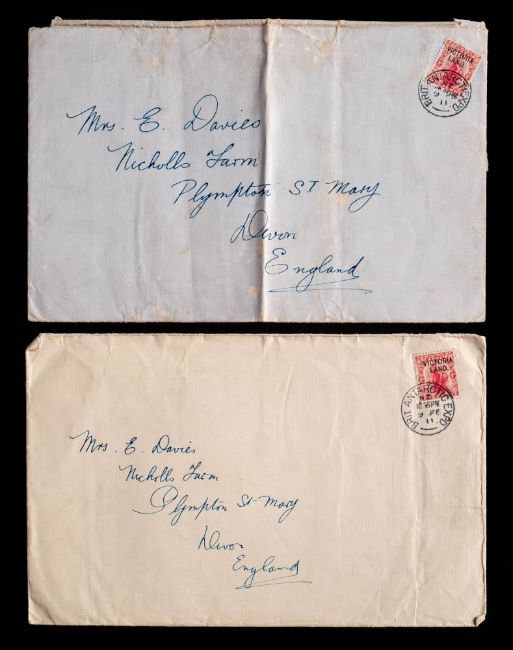 VICTORIA
LAND.
BRIT. ANTARCTIC EXPD.
11
Mrs. E. Davies
Nicholls Farm
Plympton St Mary
Devon
England
VICTORIA
LAND.
BRIT. ANTARCTIC EXPD.
9 FE
11
Mrs. E. Davies
Nicholls Farm
Plympton St. Mary
Devon
England